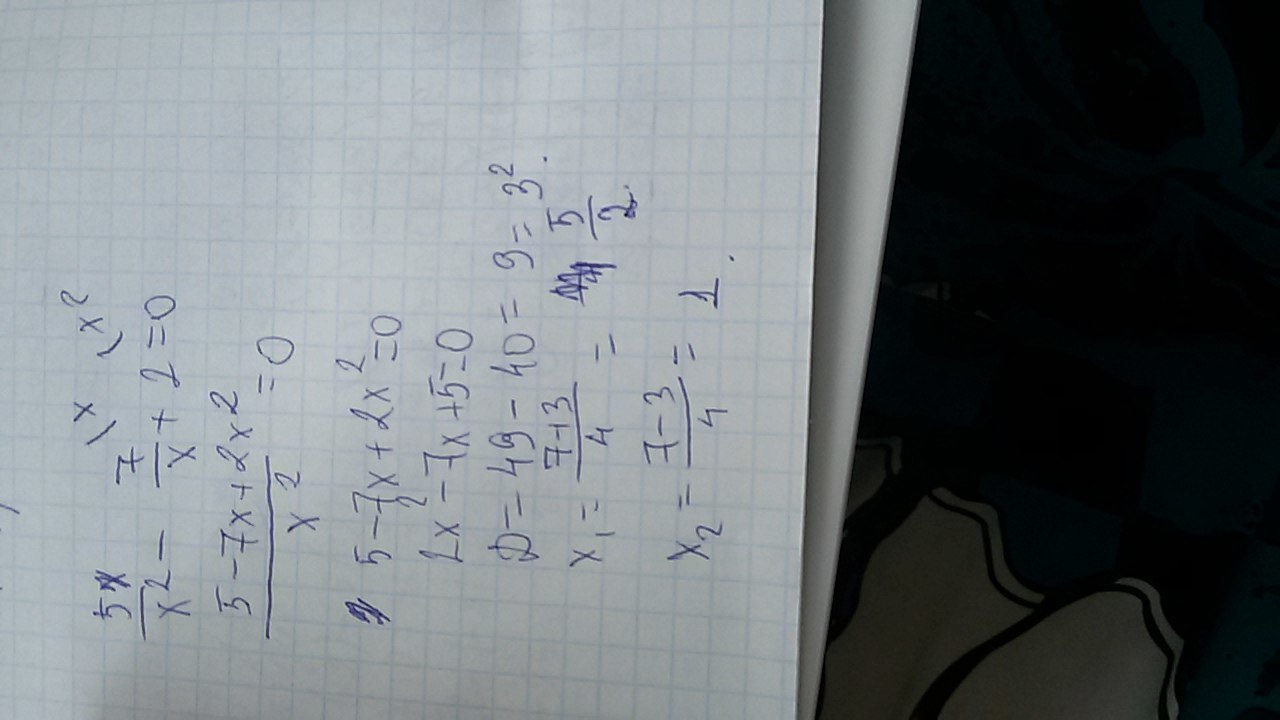 5/x² - 7/x \x + 2 \x² = 0
(5 - 7x + 2x²)/x² = 0
5 - 7x + 2x² = 0
2x² - 7x + 5 = 0
D = 49 - 40 = 9 = 3².
x₁ = (7+3)/4 = 5/2.
x₂ = (7-3)/4 = 1.